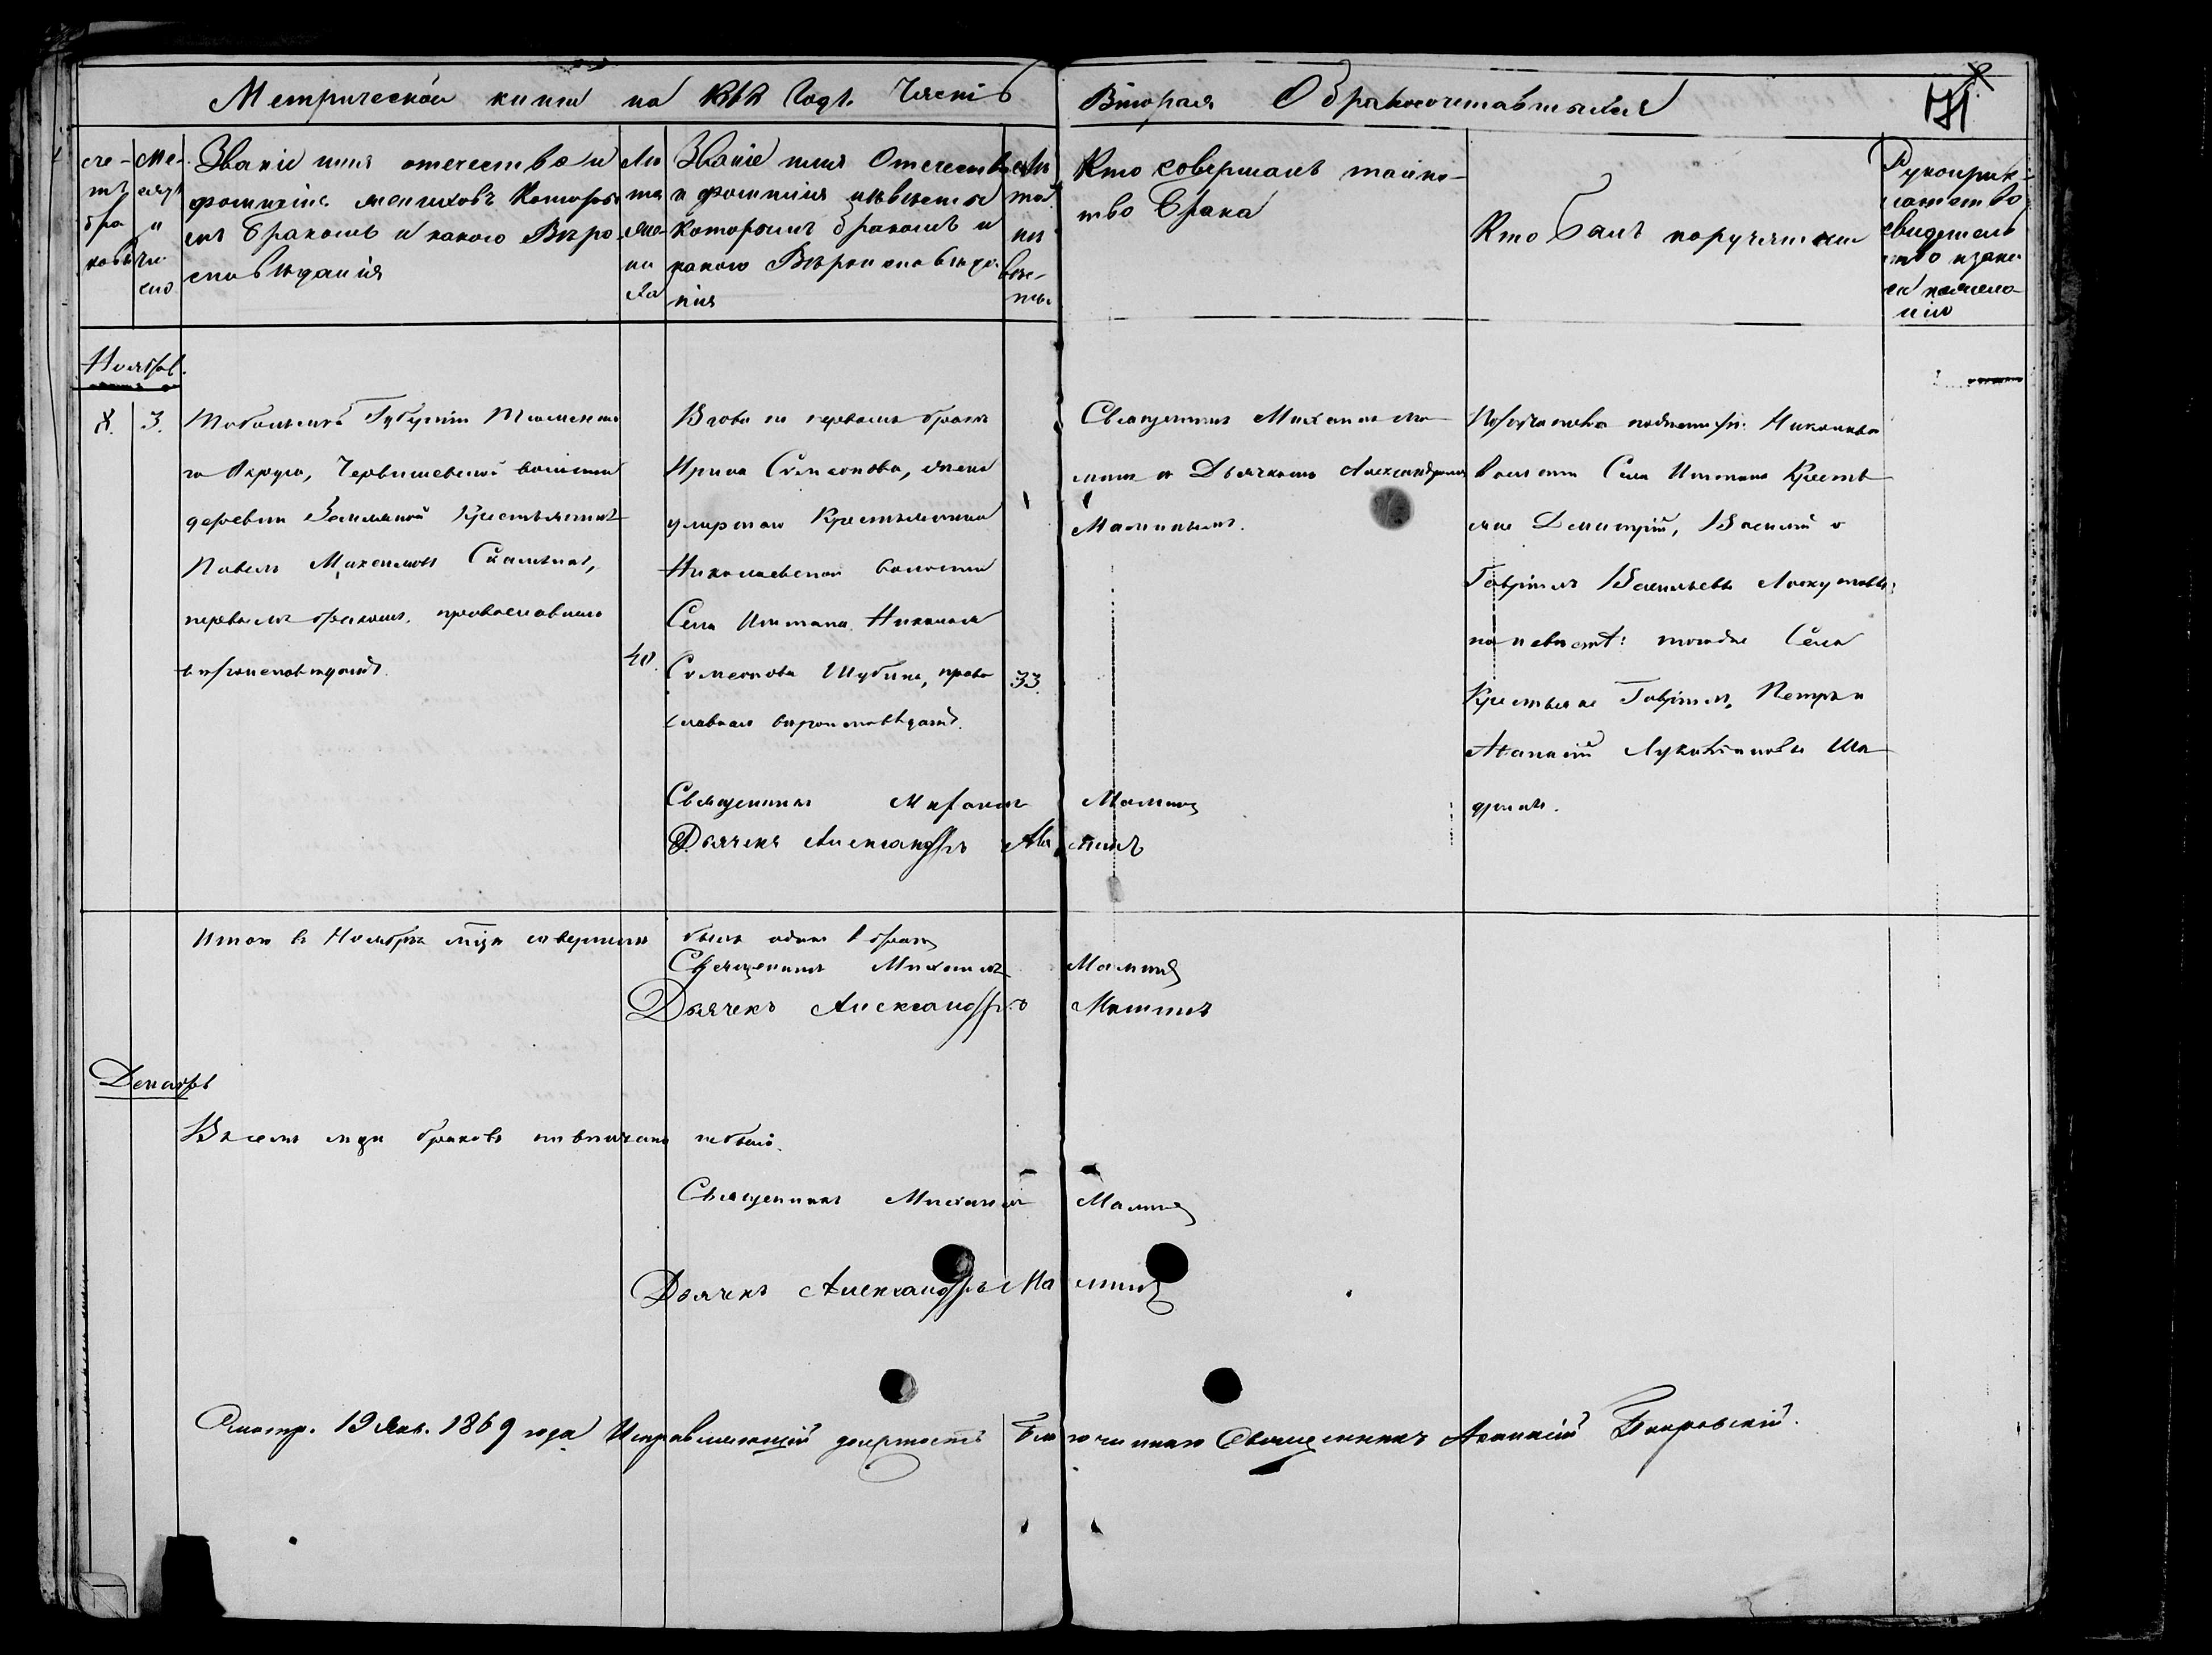 Метрической книги на 1868 годъ. Часть
Вторая О бракосочетавшихся
171
сче-
тъ
бра
ковъ
Ме-
сяцъ
и
чи
сло
Званіе имя отечество и
фамилія жениховъ которы
мъ бракомъ и какого Веро
исповѣданія
Ле
та
же-
ни
ха
Званіе имя Отечество
и фамилія невесты
которымъ бракомъ и
какого Вероисповеда
нія
Ле
та
не
вес-
ты.
Кто совершалъ таинс-
тво Брака
Кто былъ поручители
Рукоприк-
латство
свидетель
ство
Ноябрь.
8. 3.
Тобольской Губерніи Тюменска
го Округа, Червишевской волости
деревни крестьянинъ
Павелъ Михаиловъ
первымъ бракомъ, православнаго
вѣроисповѣданія.
40.
Вдова по первомъ бракѣ
Ирина Симеонова, жена
умершаго Крестьянина
Николаевской волости
Села Николая
Симеонова Шубина, право
славнаго вѣроисповѣданія.
33.
Священникъ Михаилъ Ма
минъ и Дьячкомъ Александромъ
Маминымъ.
волости Села Кресть
яне Димитрій, Василій и
Гавріилъ Васильевы
по невестѣ: тогоже Села
Крестьяне Гавріилъ, Петръ и
Аѳанасій Ша
дрины.
Священникъ Михаилъ Маминъ
Дьячекъ Александръ Маминъ
Итого въ Ноябрѣ мцѣ совершенъ былъ одинъ 1 бракъ
Священникъ Михаилъ Маминъ
Дьячекъ Александръ Маминъ
Декабрь
Въ семъ мцѣ браковъ повѣнчано небыло.
Священникъ Михаилъ Маминъ
Дьячекъ Александръ Маминъ
Смотр. 19 Янв. 1869 года Исправляющій должность Благочиннаго Священникъ Аѳанасій